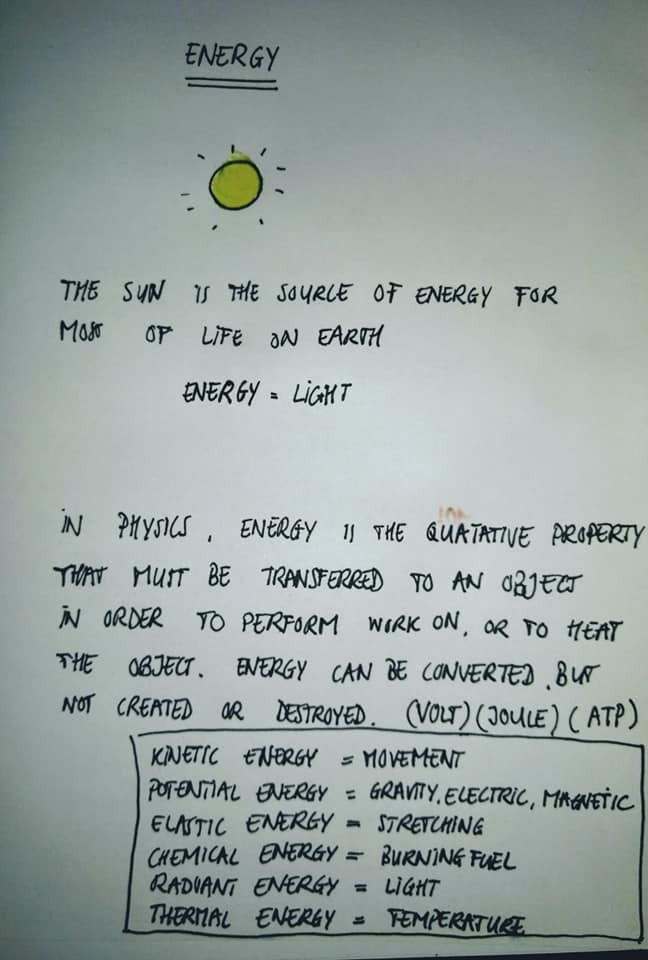 ENERGY
THE SUN IS THE SOURCE OF ENERGY FOR
MOST OF LIFE ON EARTH
ENERGY = LIGHT
IN PHYSICS, ENERGY IS THE QUATATIVE PROPERTY
THAT MUST BE TRANSFERRED TO AN OBJECT
IN ORDER TO PERFORM WORK ON, OR TO HEAT
THE OBJECT. ENERGY CAN BE CONVERTED, BUT
NOT CREATED OR DESTROYED. (VOLT) (JOULE) (ATP)
KINETIC ENERGY = MOVEMENT
POTENTIAL ENERGY = GRAVITY, ELECTRIC, MAGNETIC
ELASTIC ENERGY = STRETCHING
CHEMICAL ENERGY = BURNING FUEL
RADIANT ENERGY = LIGHT
THERMAL ENERGY = TEMPERATURE